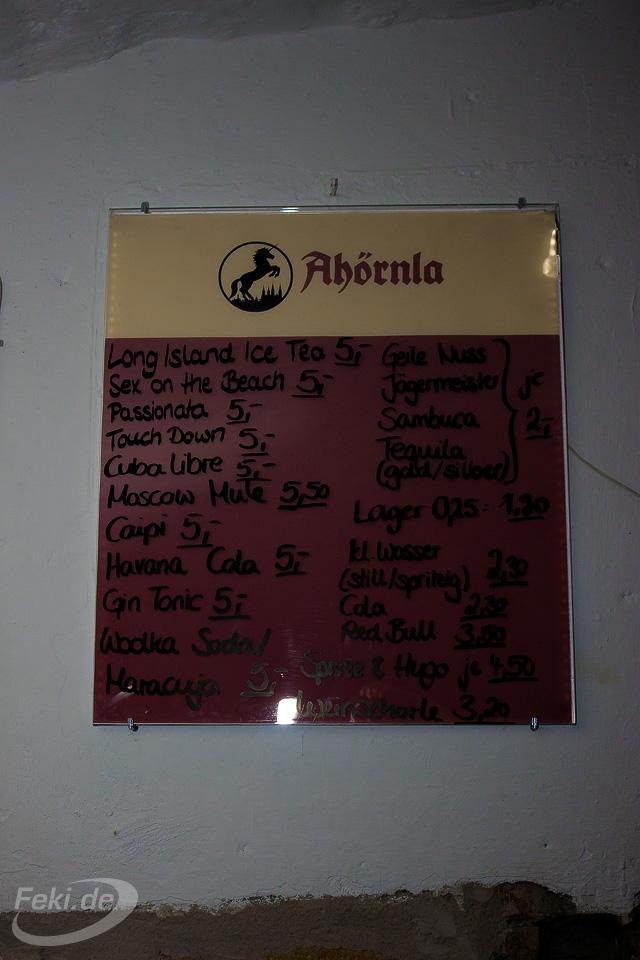 Ahörnla
Long Island Ice Tea 5,-
Sex on the Beach 5,-
Passionata 5,-
Touch Down 5,-
Cuba Libre 5,-
Moscow Mule 5,50
Caipi 5,-
Havana Cola 5,-
Gin Tonic 5,-
Wodka Soda/
Maracuja 5,-
Geile Nuss
Jägermeister je
Sambuca 2,-
Tequila
(gold/silber)
Lager 0,25: 1,20
kl. Wasser
(still/spritzig) 2,30
Cola 2,30
Red Bull 3,50
Sprizz & Hugo je 4,50
Weinschorle 3,20
Feki.de